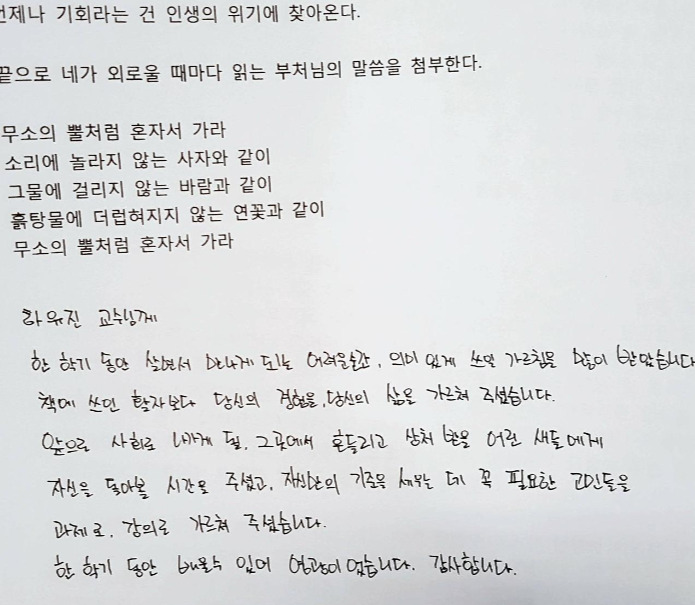 언제나 기회라는 건 인생의 위기에 찾아온다.
끝으로 네가 외로울 때마다 읽는 부처님의 말씀을 첨부한다.
무소의 뿔처럼 혼자서 가라
소리에 놀라지 않는 사자와 같이
그물에 걸리지 않는 바람과 같이
흙탕물에 더럽혀지지 않는 연꽃과 같이
무소의 뿔처럼 혼자서 가라
하유진 교수님께
한 학기 동안 살면서 만나게 되는 어려운 순간, 의미 있게 쓰일 가르침을 많이 받았습니다
책에 쓰인 활자보다 당신의 경험을, 당신의 삶을 가르쳐 주셨습니다.
앞으로 사회로 나가게 될, 그곳에서 흔들리고 상처 받을 어린 새들에게
자신을 돌아볼 시간을 주셨고, 자신만의 기준을 세우는 데 꼭 필요한 고민들을
과제로, 강의로 가르쳐 주셨습니다.
한 학기 동안 배울 수 있어 영광이었습니다. 감사합니다.